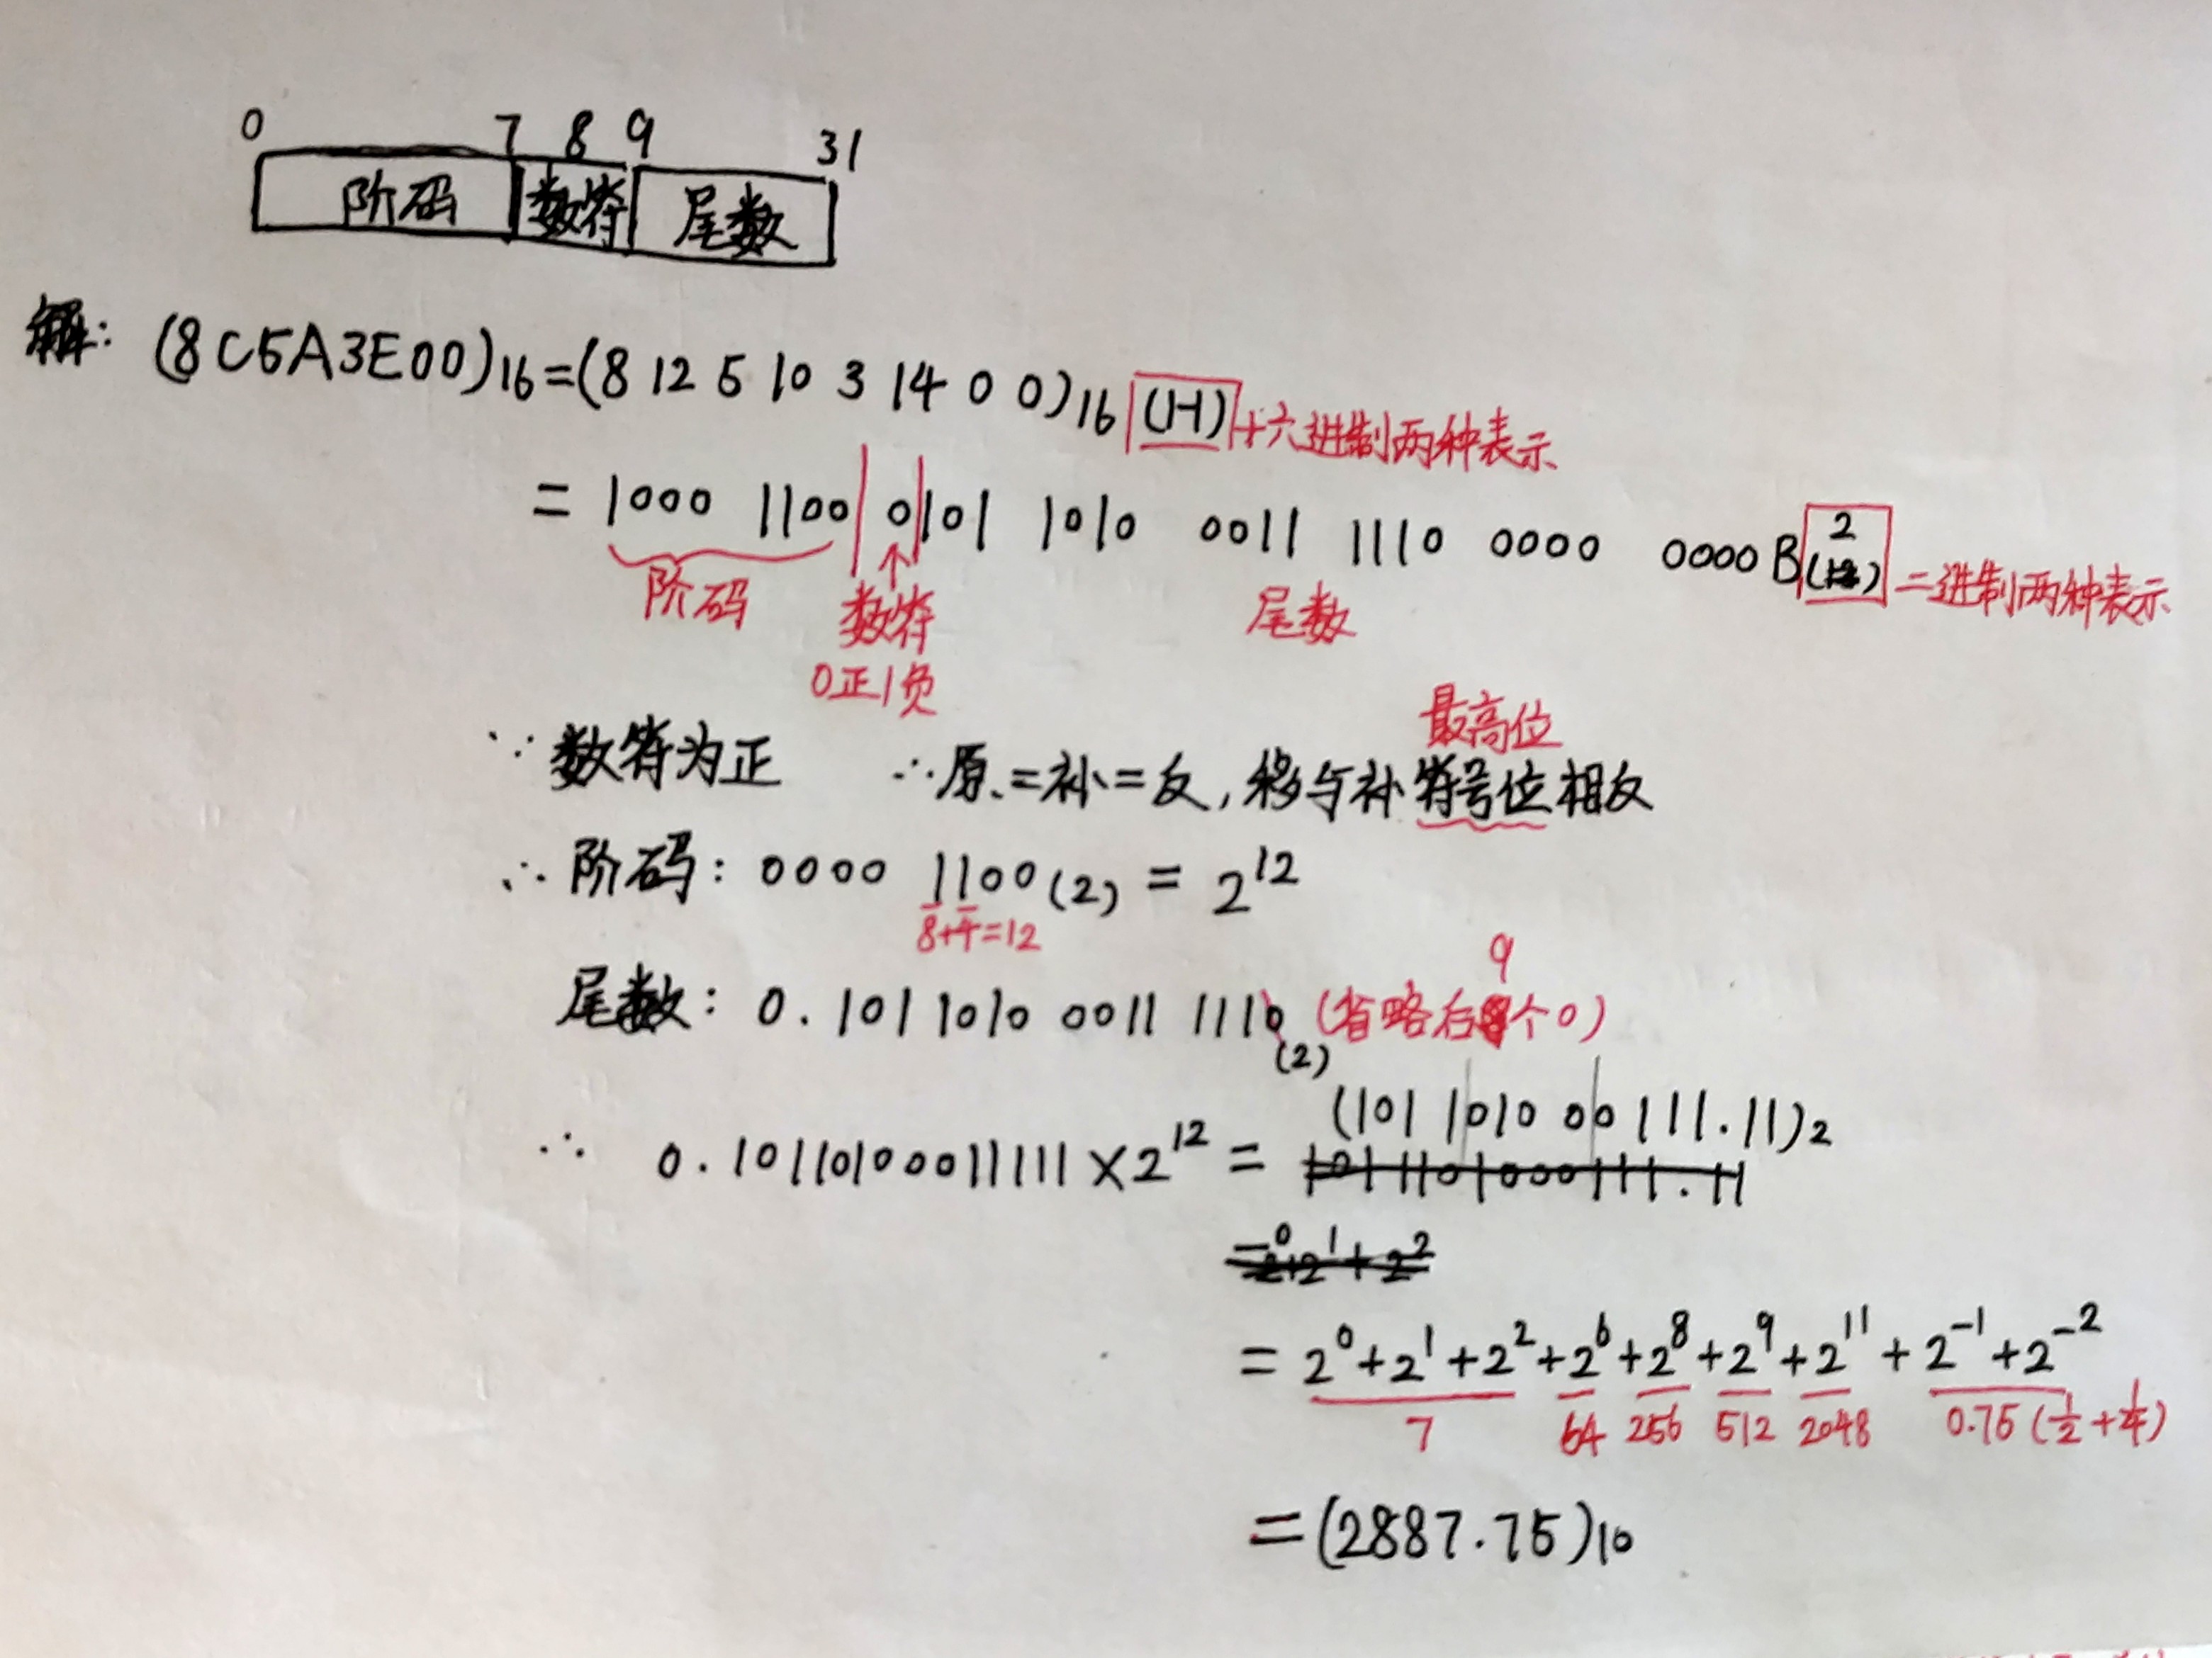 0 7 8 9 31
阶码 数符 尾数
解: (8C5A3E00)16=(8 12 5 10 3 14 0 0)16 (H) 十六进制两种表示
= 1000 1100 0101 1010 0011 1110 0000 0000 B (2) 二进制两种表示
阶码 数符 尾数
0正1负
最高位
∵ 数符为正 ∴原=补=反,移与补符号位相反
∴ 阶码: 0000 1100(2) = 2^12
8+4=12
9
尾数: 0.101 1010 0011 1110(2) (省略后个0)
(101 1010 00 111.11)2
∴ 0.10110100011111×2^12 = 101101000111.11
=2^0+2^1+2^2
= 2^0+2^1+2^2+2^6+2^8+2^9+2^11+2^-1+2^-2
7 64 256 512 2048 0.75(1/2+1/4)
=(2887.75)10